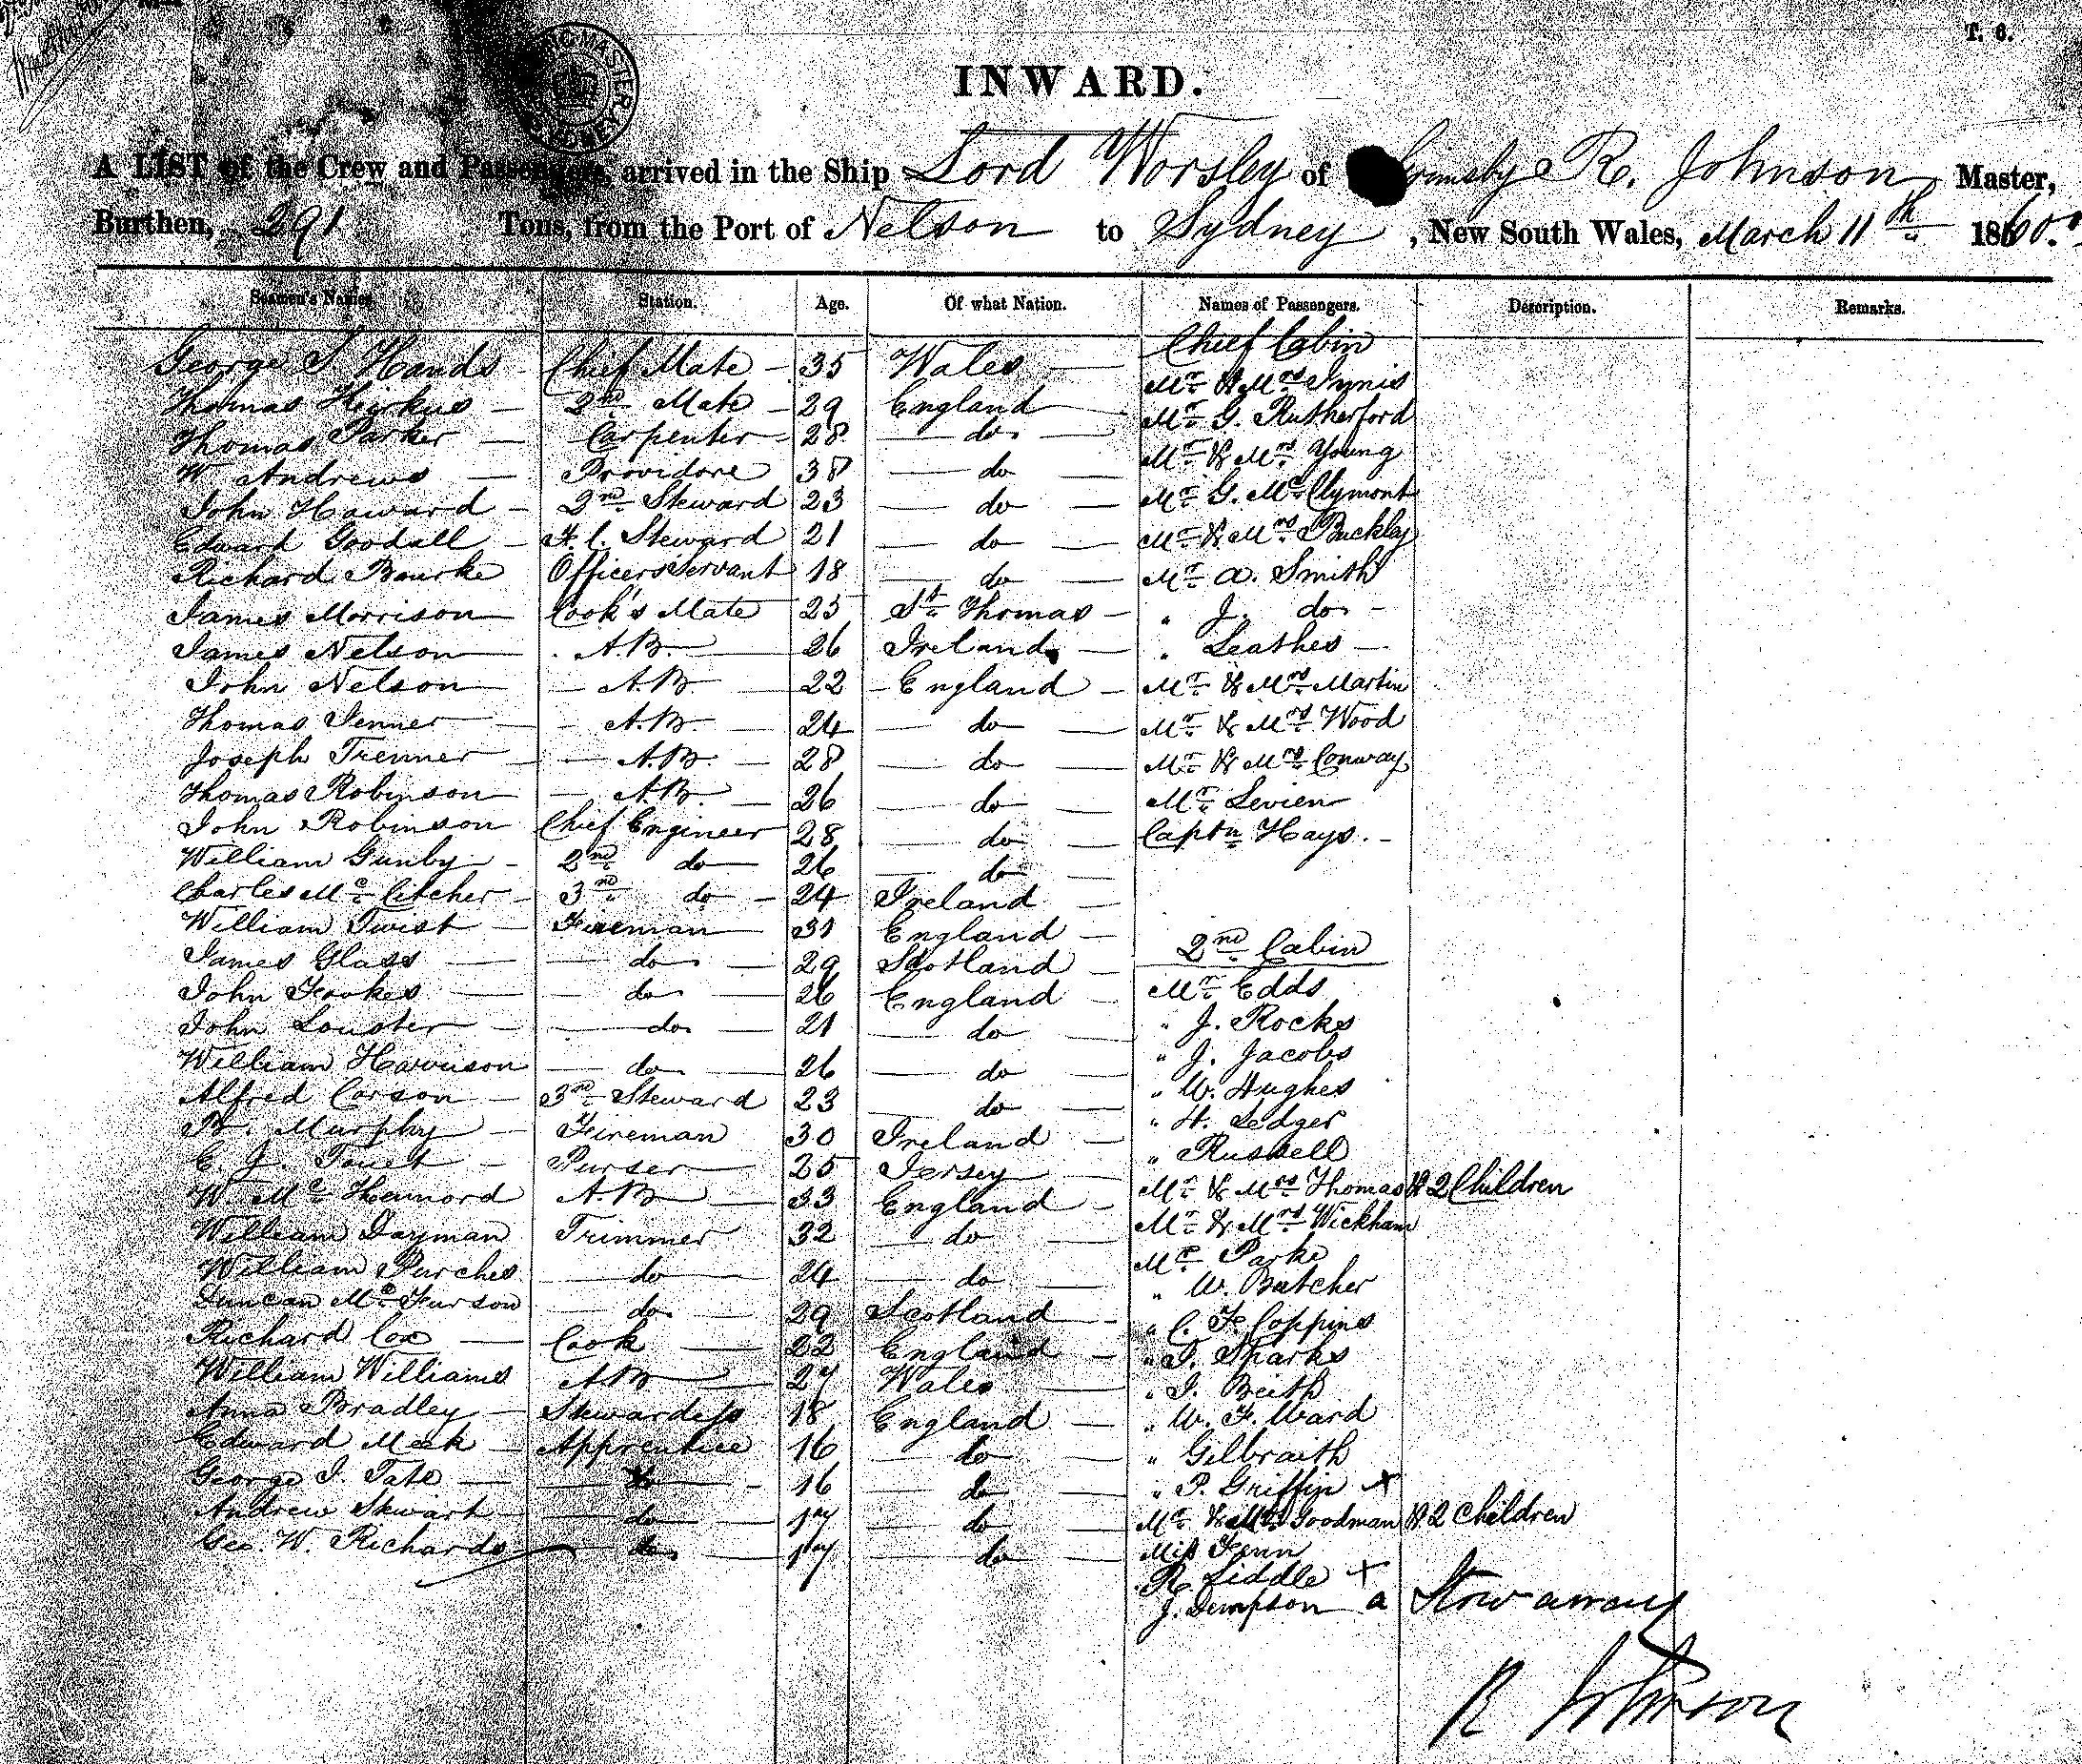 T. 6.
INWARD.
A LIST of the Crew and Passengers, arrived in the Ship Lord Worsley of Grimsby R. Johnson Master,
Burthen, 291 Tons, from the Port of Nelson to Sydney, New South Wales, March 11th 1860.
Seamen's Names. Station. Age. Of what Nation. Names of Passengers. Description. Remarks.
Chief Cabin
George S Hands Chief Mate 35 Wales Mr & Mrs Innis
Thomas Heykus 2nd Mate 29 England Mr G. Rutherford
Thomas Parker Carpenter 28 do Mr & Mrs Young
W Andrews Providore 38 do Mr G. McClymont
John Howard 2nd Steward 23 do Mr & Mrs Buckley
Edward Goodall F. C. Steward 21 do Mr A. Smith
Richard Bourke Officers Servant 18 do " J. do
James Morrison Cook's Mate 25 St Thomas " Leathes
James Nelson A.B. 26 Ireland Mr & Mrs Martin
John Nelson A.B. 22 England Mr & Mrs Wood
Thomas Jenner A.B. 24 do Mr & Mrs Conway
Joseph Trenner A.B. 28 do Mr Levien
Thomas Robinson A.B. 26 do Captn Hays.
John Robinson Chief Engineer 28 do
William Gunby 2nd do 26 do
Charles McCitcher 3rd do 24 Ireland
William Twist Fireman 31 England 2nd Cabin
James Glass do 29 Scotland Mr Edds
John Fookes do 26 England " J. Rocks
John Louster do 21 do " J. Jacobs
William Harrison do 26 do " W. Hughes
Alfred Carson 3rd Steward 23 do " H. Ledger
Murphy Fireman 30 Ireland " Russell
C. J. Touet Purser 25 Jersey Mr & Mrs Thomas & 2 Children
W. McHennord A.B 33 England Mr & Mrs Wickham
William Dayman Trimmer 32 do Mr Parke
William Purches do 24 do " W. Butcher
Duncan McFurson do 29 Scotland " C. F Coppins
Richard Cox Cook 22 England " T. Sparks
William Williams AB 27 Wales " J. Beith
Anna Bradley Stewardess 18 England " W. F. Ward
Edward Meek Apprentice 16 do " Gilbraith
George I. Tate do 16 do " P. Griffin x
Andrew Stewart do 17 do Mr & Mrs Goodman & 2 Children
Geo. W. Richards do 17 do Miss Fenn
R. Liddle x
J. Dempson a Stow away
R Johnson